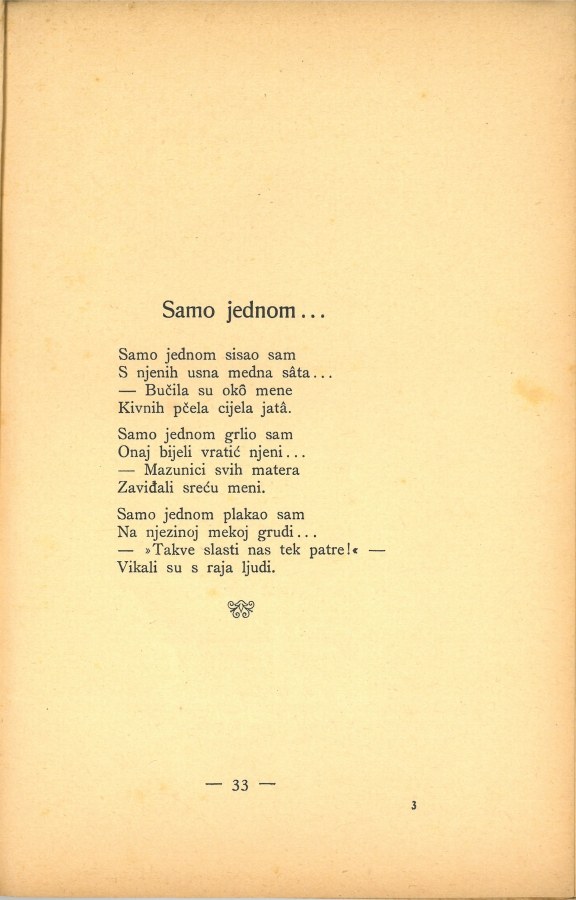 Samo jednom...
Samo jednom sisao sam
S njenih usna medna sâta...
— Bučila su okô mene
Kivnih pčela cijela jatâ.
Samo jednom grlio sam
Onaj bijeli vratić njeni...
— Mazunici svih matera
Zaviđali sreću meni.
Samo jednom plakao sam
Na njezinoj mekoj grudi...
— »Takve slasti nas tek patre!« —
Vikali su s raja ljudi.
— 33 —
3